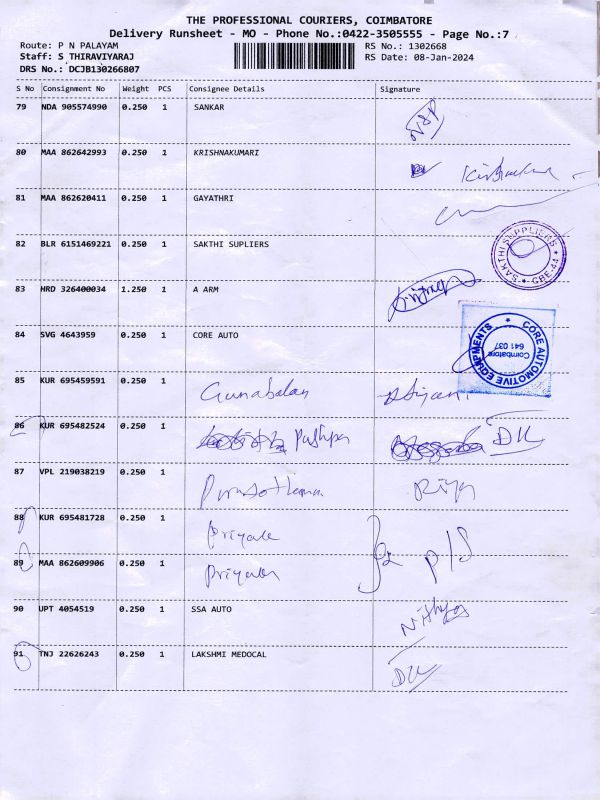 THE PROFESSIONAL COURIERS, COIMBATORE
Delivery Runsheet - MO - Phone No.:0422-3505555 - Page No.:7
Route: P N PALAYAM
Staff: S THIRAVIYARAJ
DRS No.: DCJB130266807
RS No.: 1302668
RS Date: 08-Jan-2024
S No Consignment No Weight PCS Consignee Details Signature
79 NDA 905574990 0.250 1 SANKAR
80 MAA 862642993 0.250 1 KRISHNAKUMARI
81 MAA 862620411 0.250 1 GAYATHRI
82 BLR 6151469221 0.250 1 SAKTHI SUPLIERS
SAKTHI SUPPLIERS ★ CBE-44 ★
83 HRD 326400034 1.250 1 A ARM
84 SVG 4643959 0.250 1 CORE AUTO
CORE AUTOMOTIVE EQUIPMENTS ★
Coimbatore
641 037
85 KUR 695459591 0.250 1 Gunabalan
86 KUR 695482524 0.250 1 Pushpa DK
87 VPL 219038219 0.250 1 Riya
88 KUR 695481728 0.250 1
89 MAA 862609906 0.250 1 P/S
90 UPT 4054519 0.250 1 SSA AUTO
91 TNJ 22626243 0.250 1 LAKSHMI MEDOCAL DK